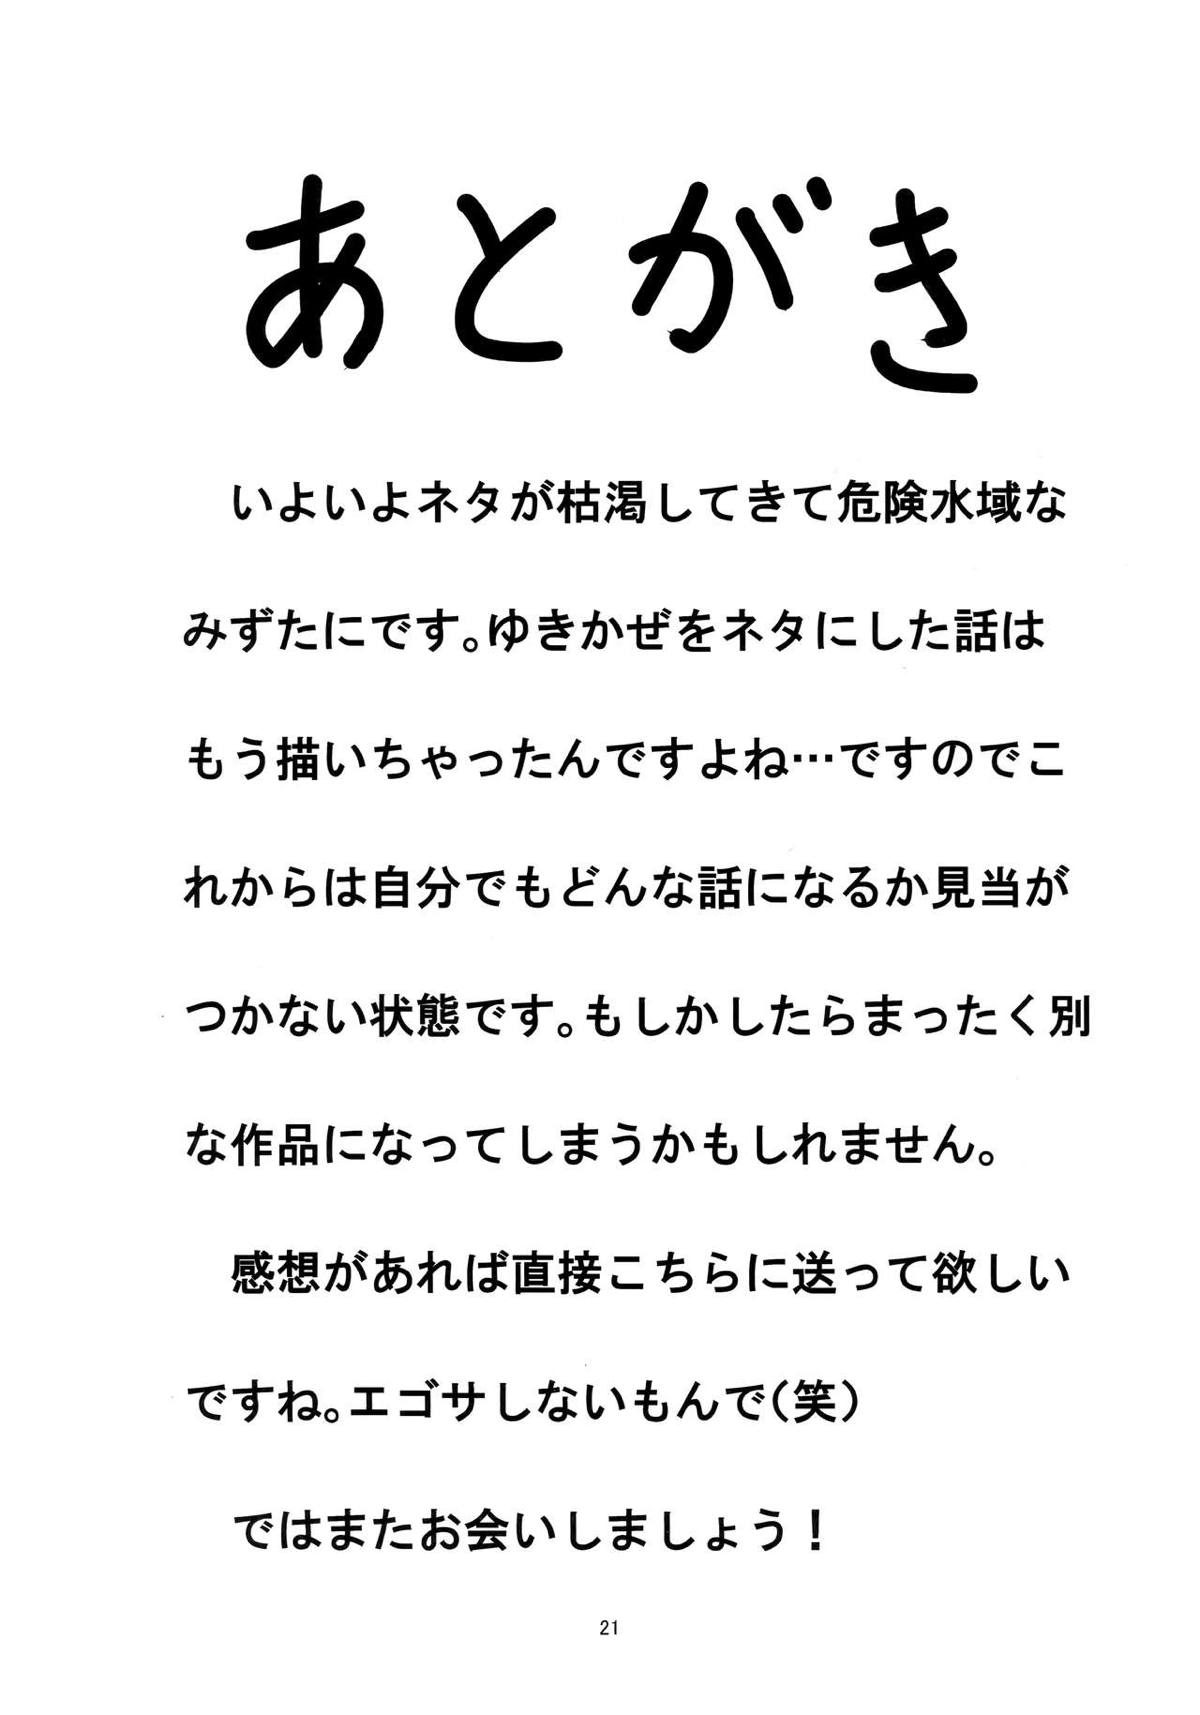 あとがき
いよいよネタが枯渇してきて危険水域な
みずたにです。ゆきかぜをネタにした話は
もう描いちゃったんですよね…ですのでこ
れからは自分でもどんな話になるか見当が
つかない状態です。もしかしたらまったく別
な作品になってしまうかもしれません。
感想があれば直接こちらに送って欲しい
ですね。エゴサしないもんで(笑)
ではまたお会いしましょう！
21